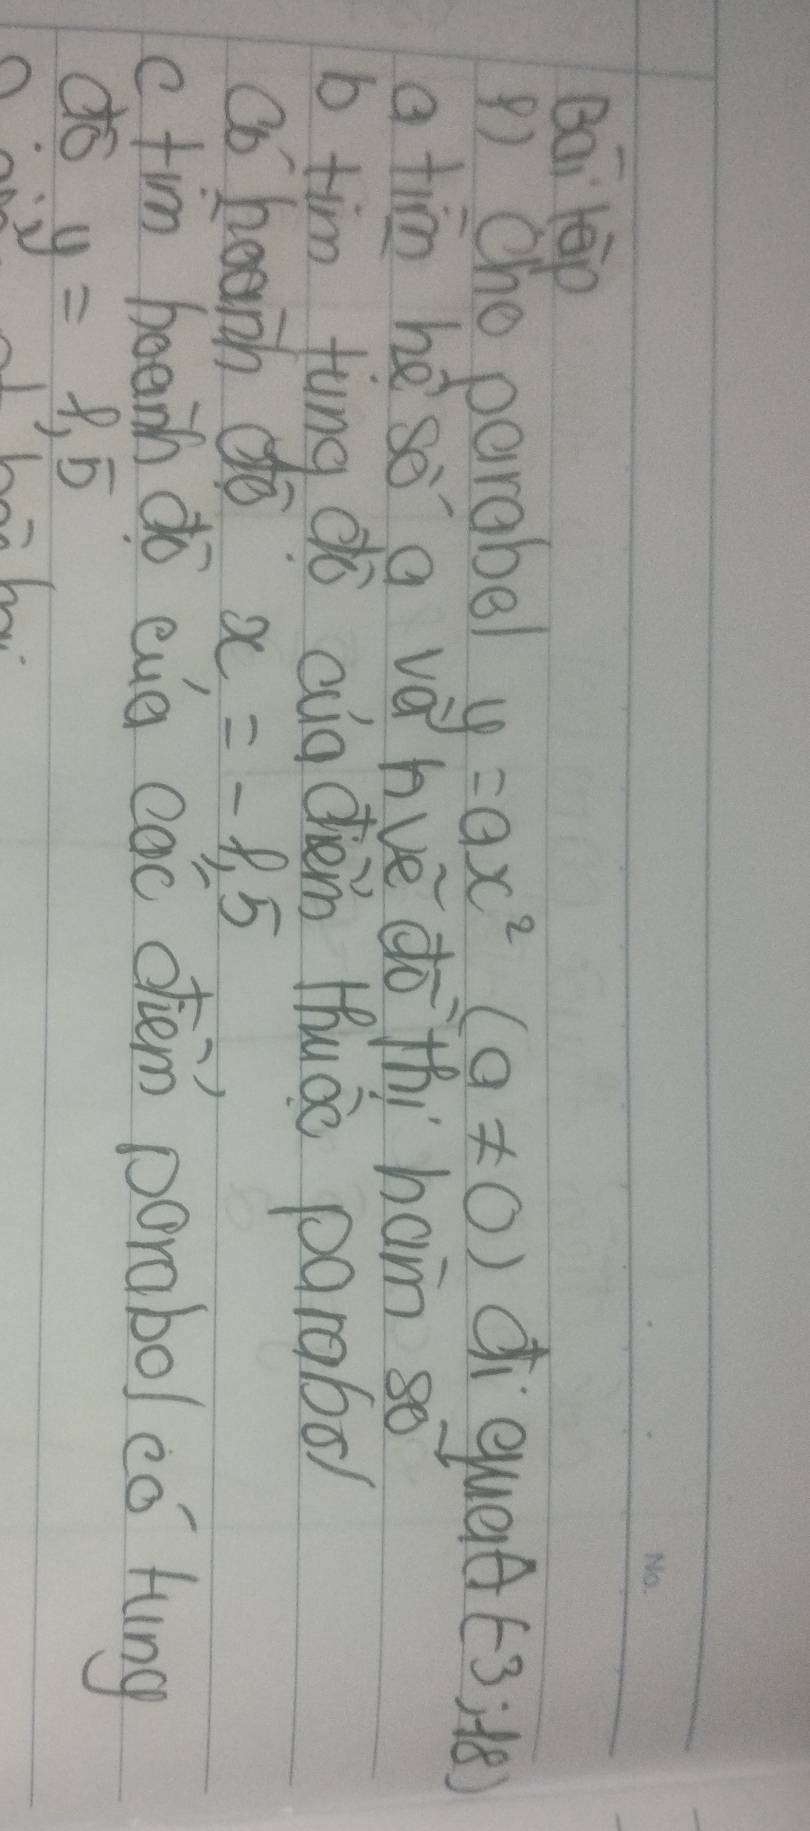 No.
Bài tập
1) Cho parabol y = ax² (a ≠ 0) đi qua A (-3; 18)
a tìm hệ số a và vẽ đồ thị hàm số
b tìm tung độ của điểm thuộc parabol
có hoành độ x = -1,5
c tìm hoành độ của các điểm parabol có tung
độ y = 1,5